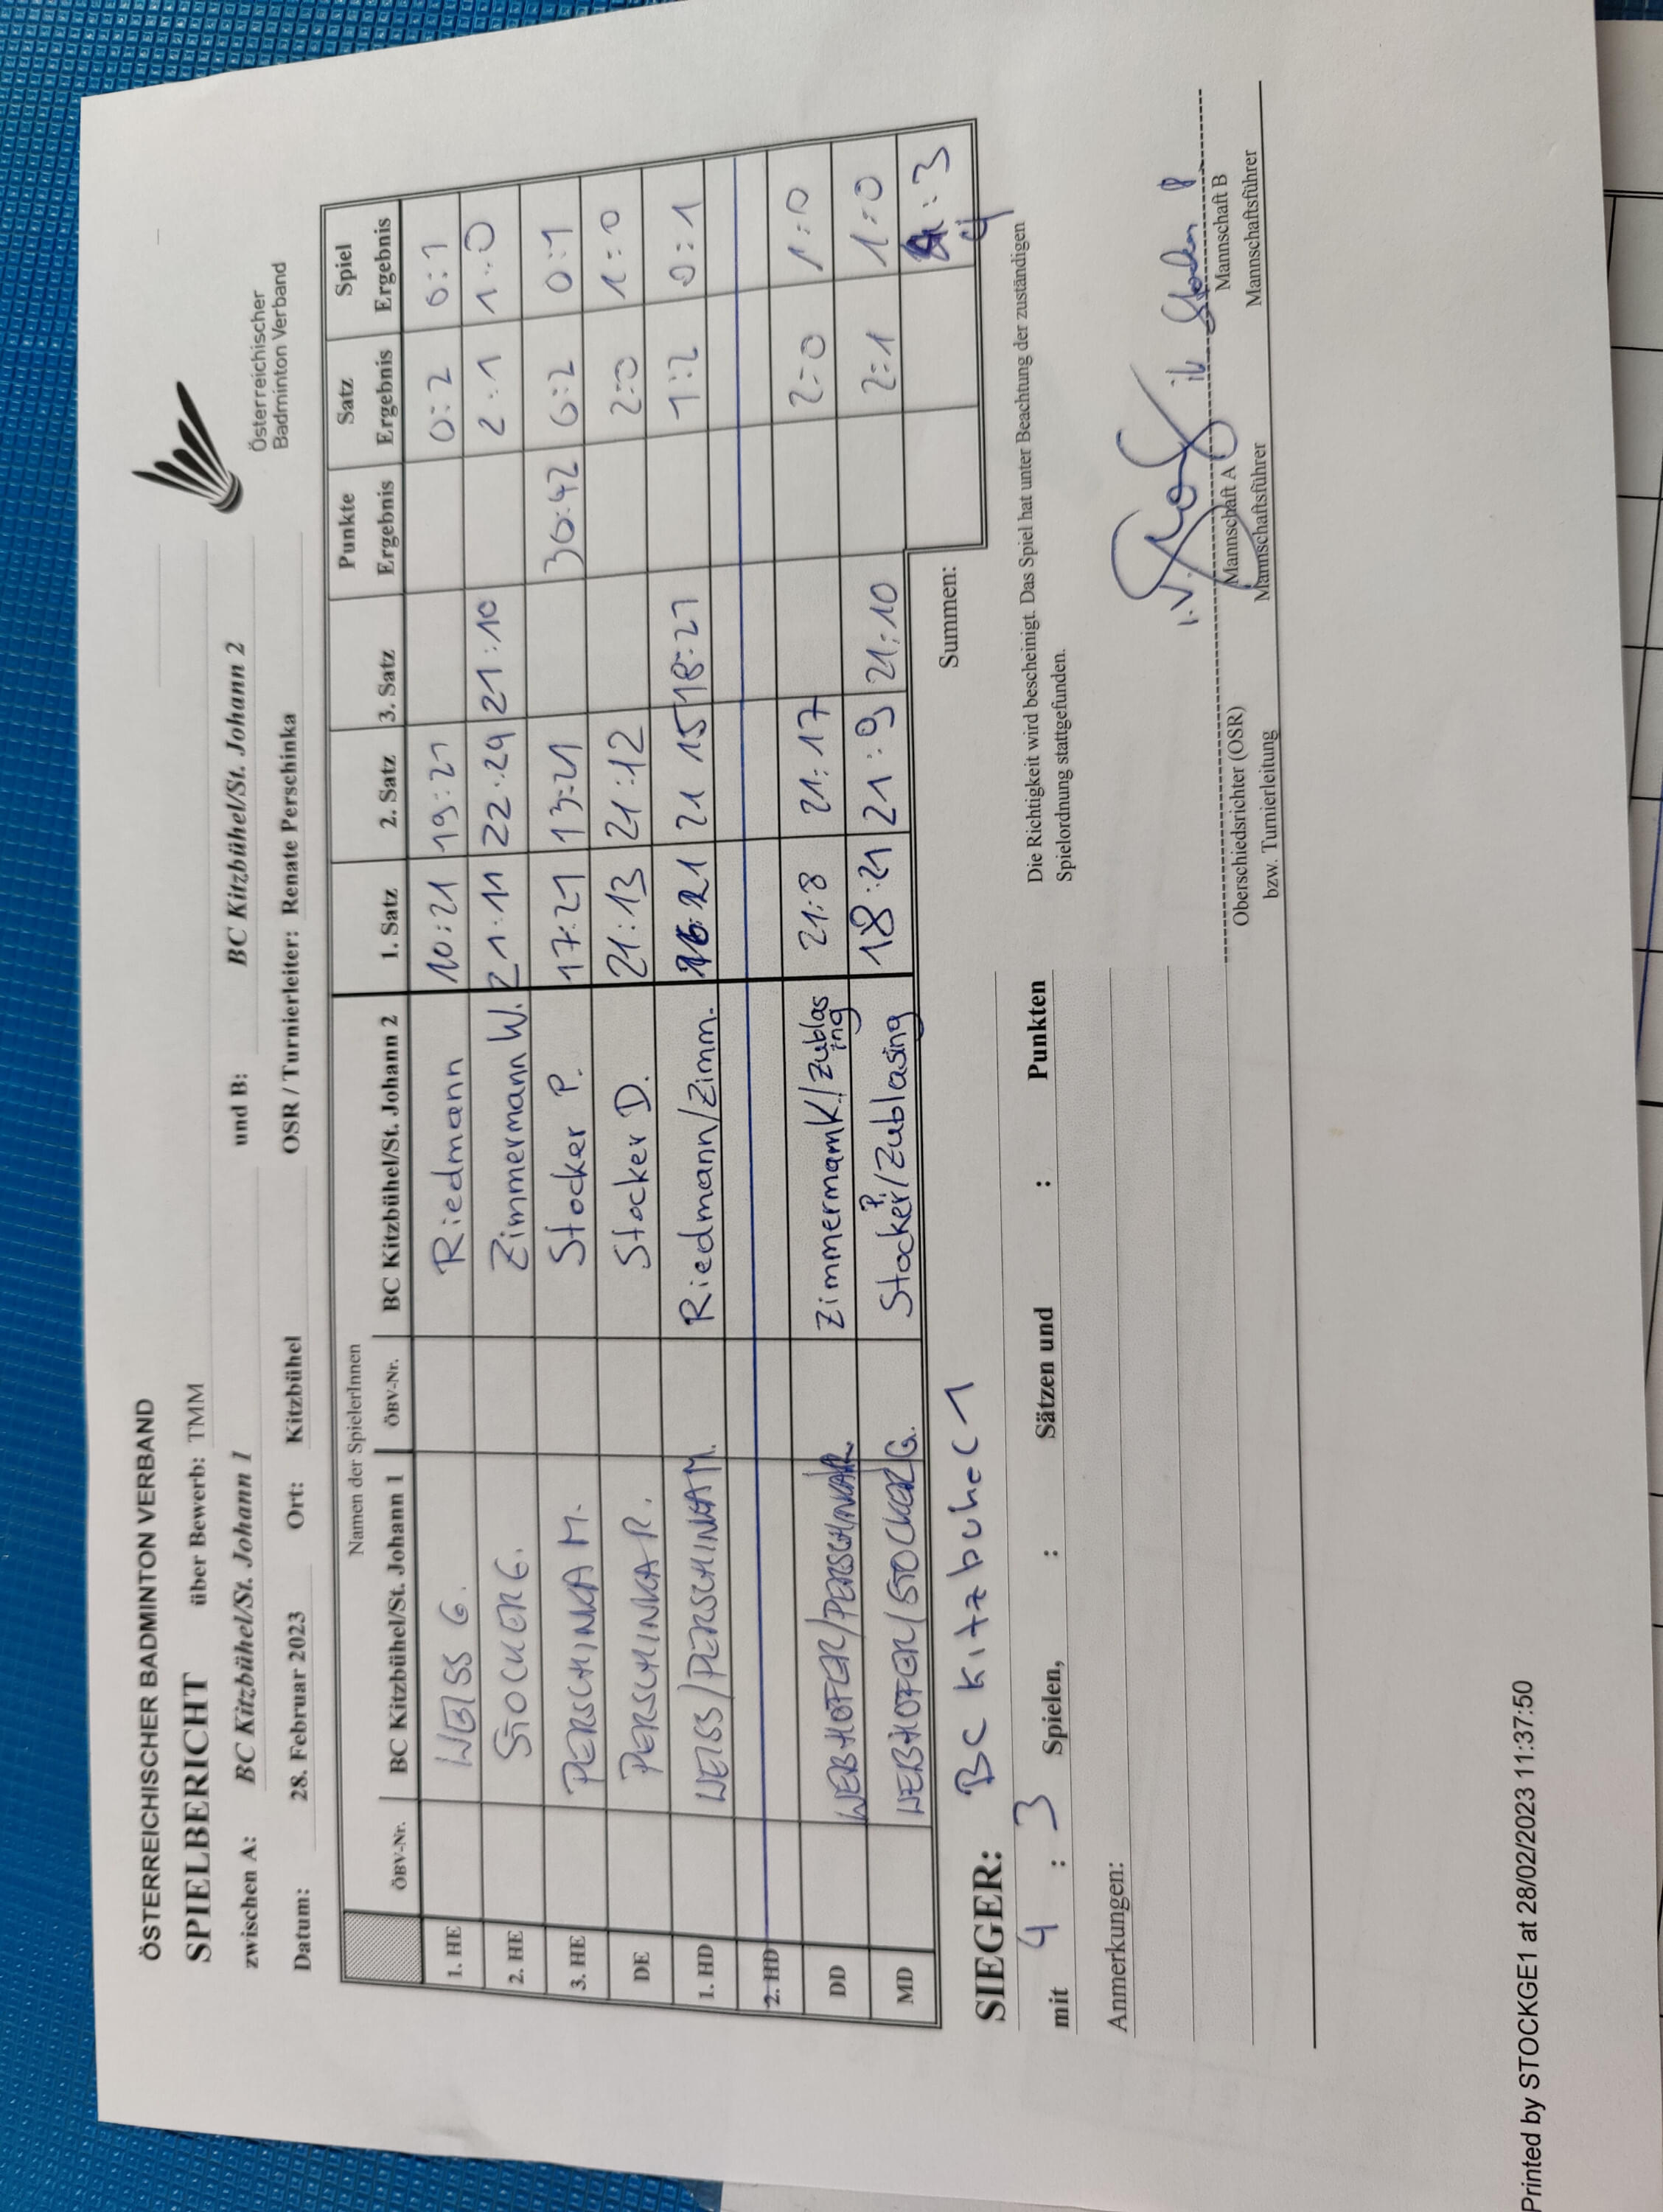 ÖSTERREICHISCHER BADMINTON VERBAND
SPIELBERICHT über Bewerb: TMM
Österreichischer
Badminton Verband
zwischen A: BC Kitzbühel/St. Johann 1 und B: BC Kitzbühel/St. Johann 2
Datum: 28. Februar 2023 Ort: Kitzbühel OSR / Turnierleiter: Renate Perschinka
Namen der SpielerInnen
ÖBV-Nr. BC Kitzbühel/St. Johann 1 ÖBV-Nr. BC Kitzbühel/St. Johann 2 1. Satz 2. Satz 3. Satz Punkte Ergebnis Satz Ergebnis Spiel Ergebnis
1. HE WEISS G. Riedmann 10:21 19:21 0:2 0:1
2. HE STOCKER G. Zimmermann W. 21:11 22:24 21:10 2:1 1:0
3. HE PERSCHINKA M. Stocker P. 17:21 13:21 30:42 0:2 0:1
DE PERSCHINKA R. Stocker D. 21:13 21:12 2:0 1:0
1. HD WEISS/PERSCHINKA M. Riedmann/Zimm. 16:21 21 15 18:21 1:2 0:1
2. HD
DD WEBHOFER/PERSCHINKA R. Zimmermann K./Zublasing 21:8 21:17 2:0 1:0
MD WEBHOFER/STOCKER G. Stocker P./Zublasing 18:21 21:9 21:10 2:1 1:0
Summen: 4:3
SIEGER: BC Kitzbühel 1
mit 4 : 3 Spielen, : Sätzen und : Punkten
Die Richtigkeit wird bescheinigt. Das Spiel hat unter Beachtung der zuständigen
Spielordnung stattgefunden.
Anmerkungen:
i.V. Stocker P
Oberschiedsrichter (OSR) Mannschaft A Mannschaft B
bzw. Turnierleitung Mannschaftsführer Mannschaftsführer
Printed by STOCKGE1 at 28/02/2023 11:37:50